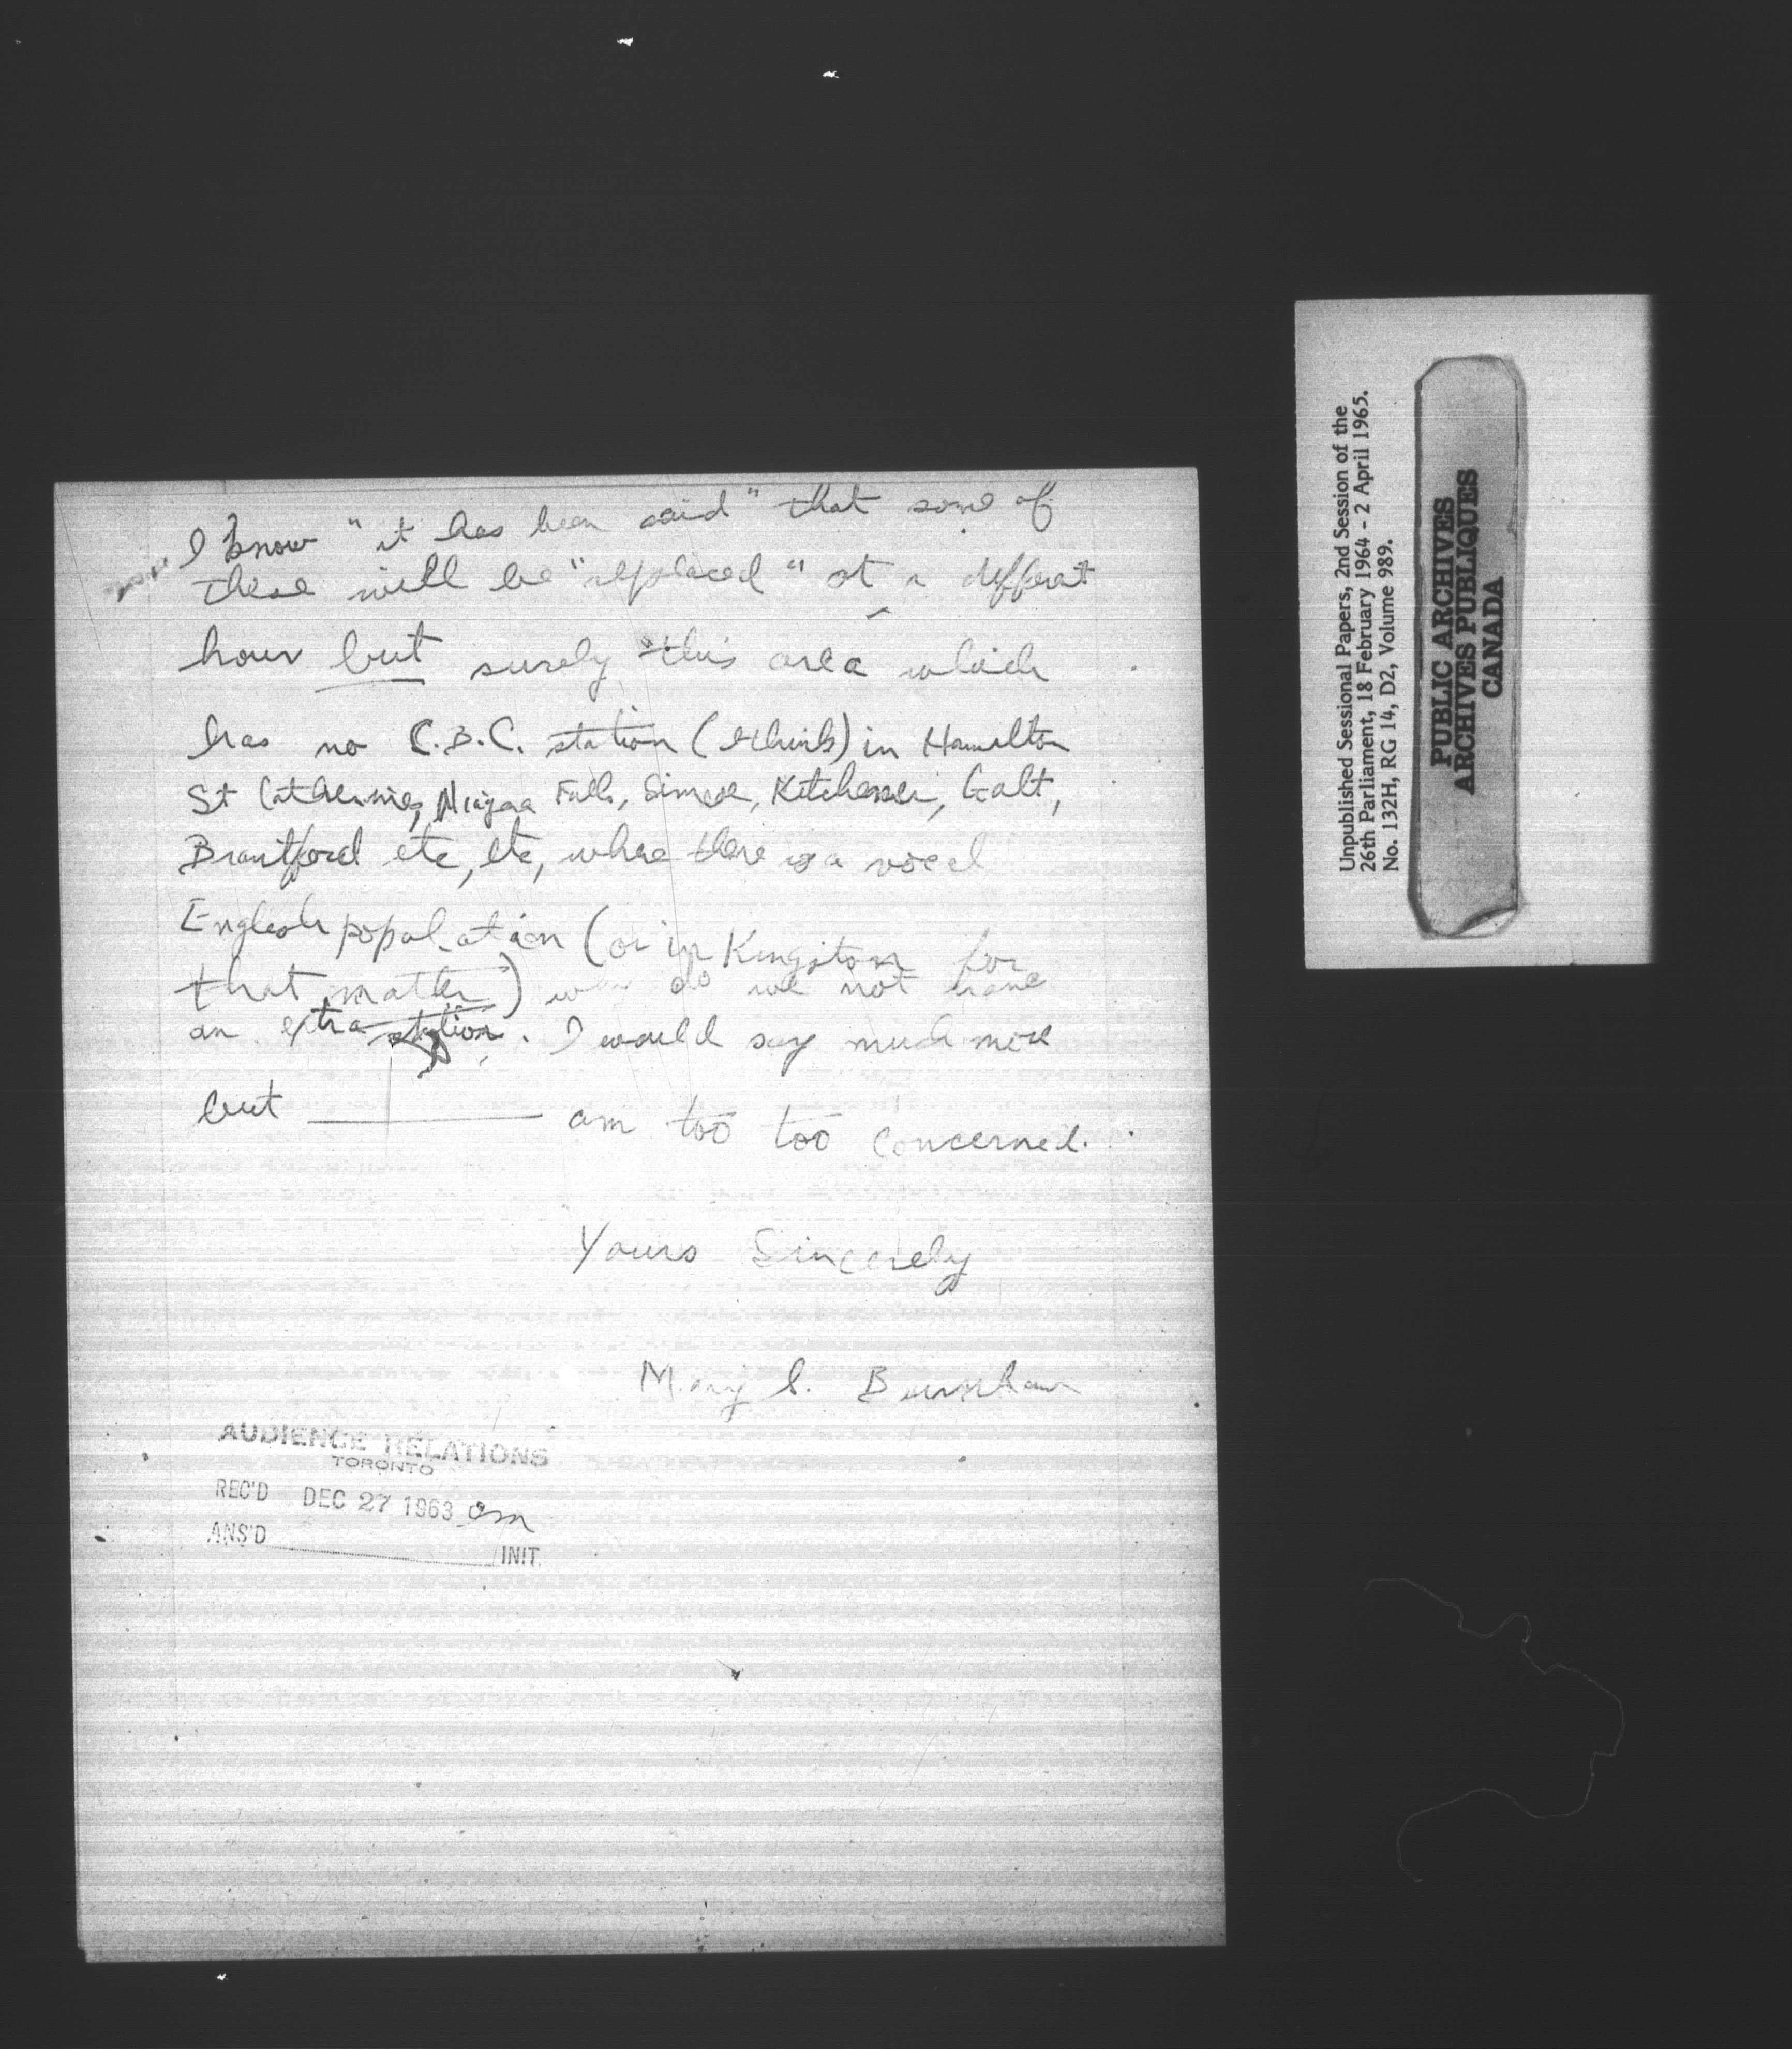 I know "it has been said" that some of
these will be "replaced" at a different
hour but surely this area which
has no C.B.C. station (I think) in Hamilton
St Catherines, Niagara Falls, Simcoe, Kitchener, Galt,
Brantford etc, etc, where there is a vocal
English population (or in Kingston for
that matter) do we not have
an extra station. I would say much more
but ______ am too too concerned.
Yours Sincerely
Mary
AUDIENCE RELATIONS
TORONTO
REC'D DEC 27 1963
ANS'D ______ INIT.
Unpublished Sessional Papers, 2nd Session of the
26th Parliament, 18 February 1964 - 2 April 1965.
No. 132H, RG 14, D2, Volume 989.
PUBLIC ARCHIVES
ARCHIVES PUBLIQUES
CANADA